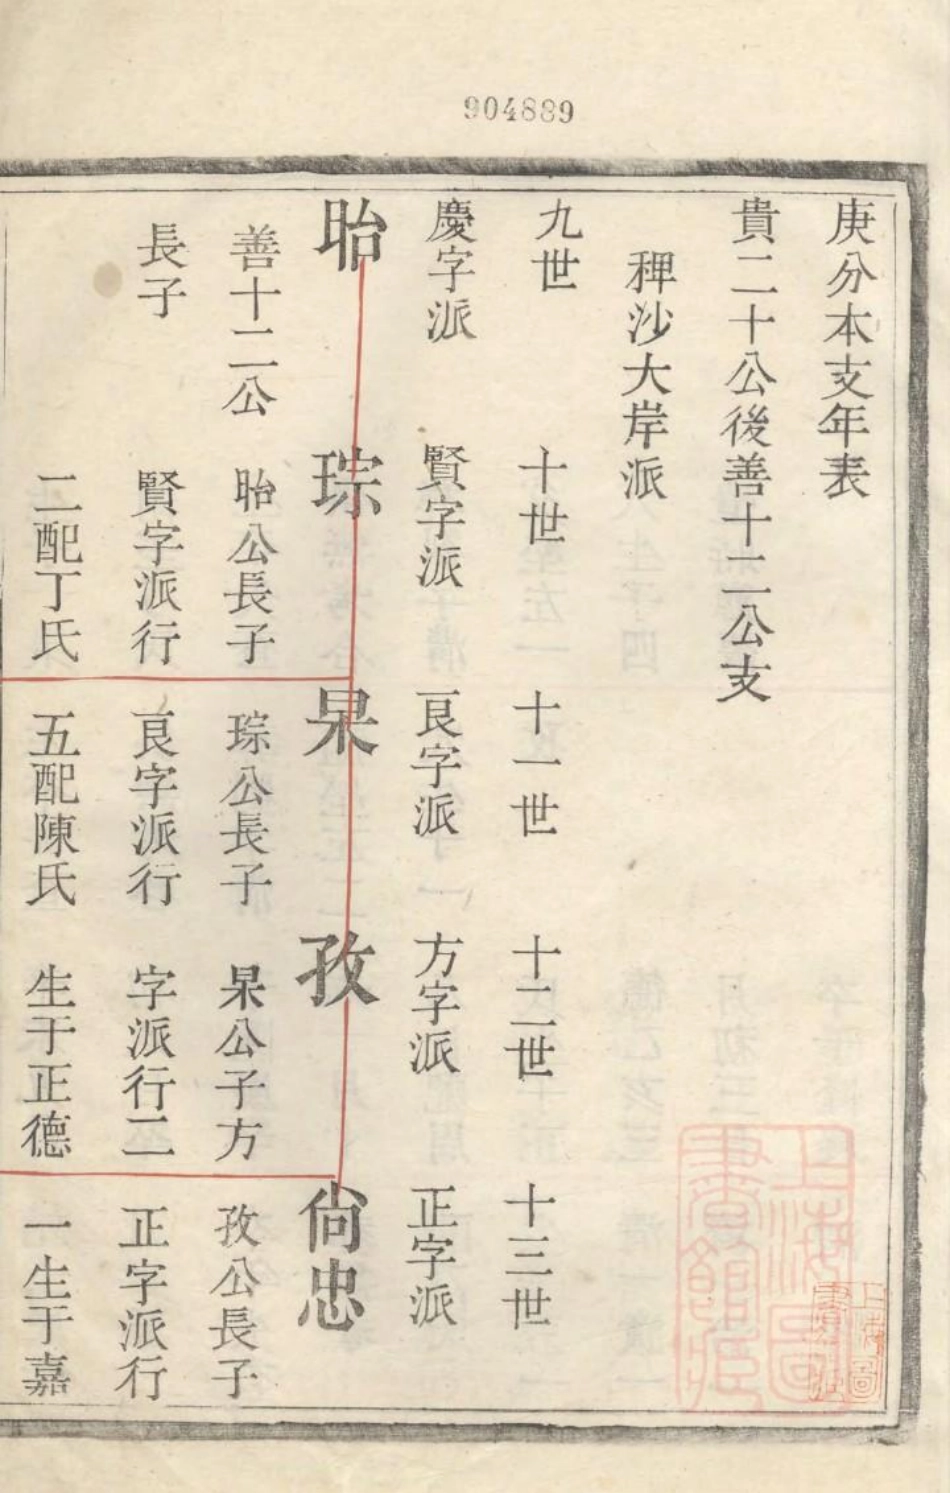 904889
庚分本支年表
貴二十公後善十二公支
稗沙大岸派
九世
十世
十一世
十二世
十三世
慶字派
賢字派
艮字派
方字派
正字派
眙
琮
杲
孜
尚忠
善十二公
長子
眙公長子
賢字派行
二配丁氏
琮公長子
艮字派行
五配陳氏
杲公子方
字派行二
生于正德
孜公長子
正字派行
一生于嘉
上海圖書館藏